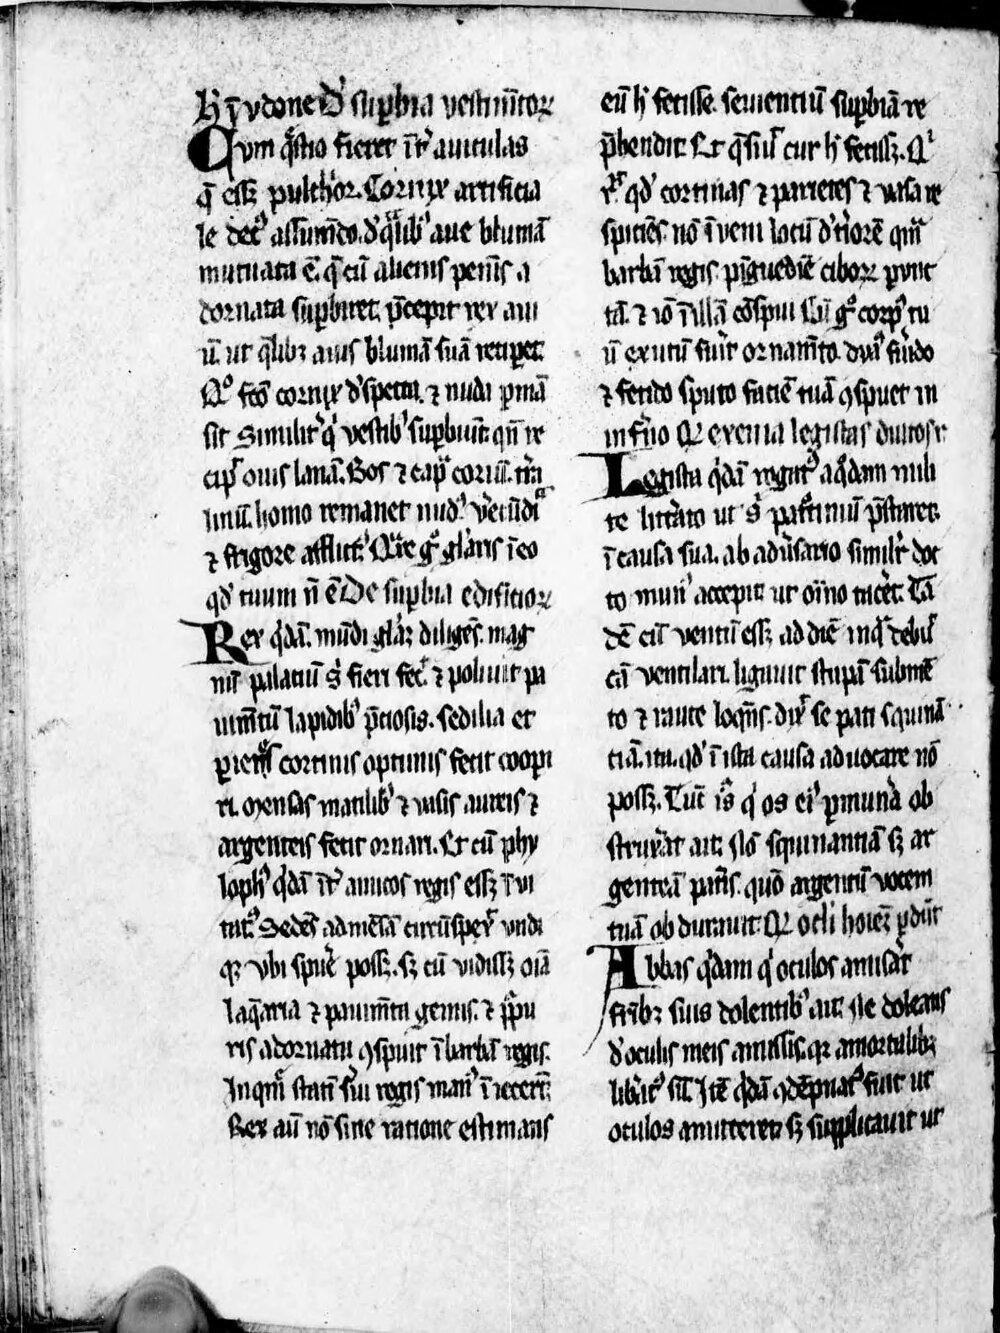 h̄ ī ydone D' suꝑbia vestim̄toꝝ
Qvm q̄stio fieret īt' auiculas
q̄ eēꝫ pulch'or. Cornix artificia
le dec' assum̄do. d' q̄lib' aue blumā
mutuata ē. q̄ cū alienis pen̄is a
dornata suꝑbiret. p̄cepit rex aui
ū. ut q̄libꝫ auis blumā suā reciꝑet.
Qͦ fc̄o cornix d'specta. ⁊ nuda ꝑmā
sit Similit' q' vestib' suꝑbiūt. qn̄ re
cip̄ ouis lanā. Bos ⁊ cap̄ coriū. t'ra
linū. homo remanet nud'. v'ecūdia
⁊ frigore afflict' Q're g° gl'aris ī eo
qd' tuum n̄ ē De suꝑbia edificioꝝ
Rex q'dā. mūdi gl'aꝫ diligēs. mag
nū palatiū s' fieri fec̄. ⁊ poliuit pa
uim̄tū lapidib' p̄ciosis. sedilia et
ꝑietes cortinis optimis fecit cooꝑi
ri. mensas matilib' ⁊ vasis aureis ⁊
argenteis fecit ornari. Et cū phy
loph' q'dā īt' amicos regis eēꝫ ī vi
tat'. Sedēs ad mēsā circūspex' undi
qꝫ vbi spue' posꝫ. sꝫ cū vidissꝫ oīa
laq̄aria ⁊ pauim̄ta gemis. ⁊ pp̄u
ris adornata ꝯspuit ī barbā regis.
Inqm̄ statī s'ui regis man' īiecerūt.
Rex aū nō sine ratione estimans
eū h' fecisse. seuientiū suꝑbiā re
p̄hendit. Et q̄siuit cur h' fecissꝫ. Q'
r̄r qd' cortinas ⁊ parietes ⁊ vasa re
spiciēs. nō īueni locū d't'iorē qm̄
barbā regis. pīguedīe ciboꝝ ꝑunc
tā. ⁊ iō ī illā cōspui Cū g° corp' tu
ū exutū fu'it ornam̄to. dya' fu'ido
⁊ fetido sputo faciē tuā ꝯspuet in
inf'no Qꝛ exenia legistas
Legista q'dā rogat' a q'dam mili
te litt'ato ut s' pat'ciniū p̄staret.
ī causa sua. ab adu'sario simil'r doc
to mun' accepit. ut oīno tac'et. Cū
dē cū ventū eēꝫ ad diē in q' debuit
cā ventilari. ligauit stupā submē
to ⁊ rauce loqn̄s. dix' se pati squinā
tiā. ita. qd' ī ista causa aduocare nō
posꝫ. Tūc is q' os ei' ꝑ mun'a ob
strux'at ait. nō squinantiā sꝫ ar
genteā pat'is. quō argentū vocem
tuā obdurauit Qꝛ ocl'i
Abbas q'dam q' oculos amis'at
fr̄ibꝫ suis dolentib' ait. ne doleatis
d' oculis meis amissis. qꝛ a mortalibꝫ
lib'at' sū. Itē q'dā ꝯdēpnat' fuit ut
oculos amitteret. sꝫ supplicauit ut